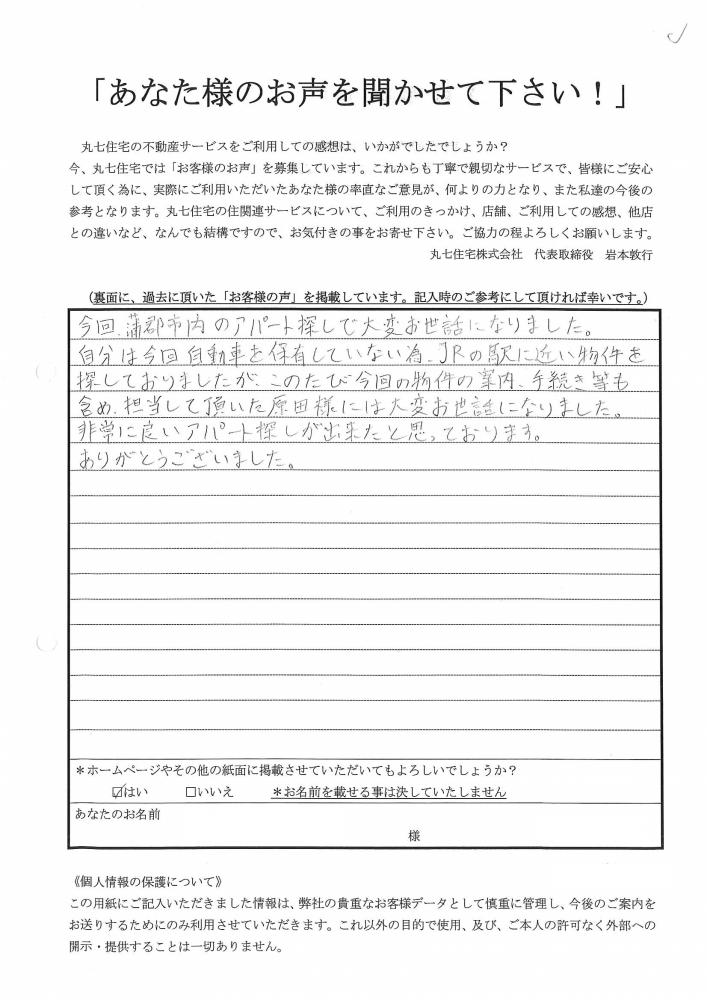 「あなた様のお声を聞かせて下さい！」
丸七住宅の不動産サービスをご利用しての感想は、いかがでしたでしょうか？
今、丸七住宅では「お客様のお声」を募集しています。これからも丁寧で親切なサービスで、皆様にご安心
して頂く為に、実際にご利用いただいたあなた様の率直なご意見が、何よりの力となり、また私達の今後の
参考となります。丸七住宅の住関連サービスについて、ご利用のきっかけ、店舗、ご利用しての感想、他店
との違いなど、なんでも結構ですので、お気付きの事をお寄せ下さい。ご協力の程よろしくお願いします。
丸七住宅株式会社　代表取締役　岩本敦行
（裏面に、過去に頂いた「お客様の声」を掲載しています。記入時のご参考にして頂ければ幸いです。）
今回、蒲郡市内のアパート探しで大変お世話になりました。
自分は今回自動車を保有していない為、JRの駅に近い物件を
探しておりましたが、このたび今回の物件の案内、手続き等も
含め、担当して頂いた原田様には大変お世話になりました。
非常に良いアパート探しが出来たと思っております。
ありがとうございました。
＊ホームページやその他の紙面に掲載させていただいてもよろしいでしょうか？
☑はい　□いいえ　＊お名前を載せる事は決していたしません
あなたのお名前
様
《個人情報の保護について》
この用紙にご記入いただきました情報は、弊社の貴重なお客様データとして慎重に管理し、今後のご案内を
お送りするためにのみ利用させていただきます。これ以外の目的で使用、及び、ご本人の許可なく外部への
開示・提供することは一切ありません。